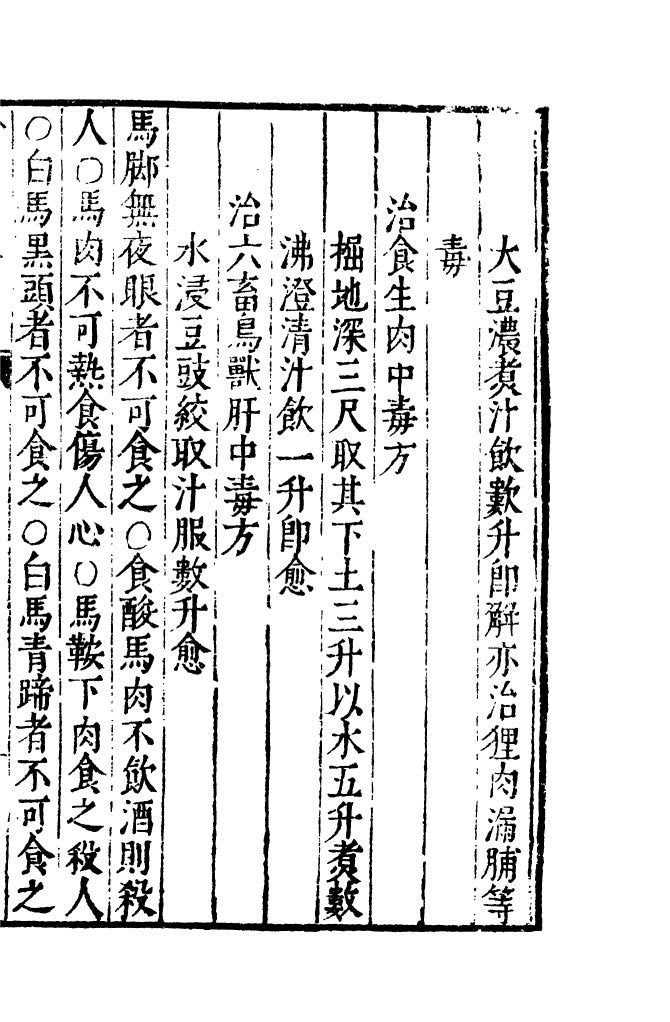 大豆濃煑汁飲數升卽解亦治狸肉漏脯等
毒
治食生肉中毒方
掘地深三尺取其下土三升以水五升煑數
沸澄清汁飲一升卽愈
治六畜鳥獸肝中毒方
水浸豆豉絞取汁服數升愈
馬脚無夜眼者不可食之○食酸馬肉不飲酒則殺
人○馬肉不可熱食傷人心○馬鞍下肉食之殺人
○白馬黑頭者不可食之○白馬青蹄者不可食之